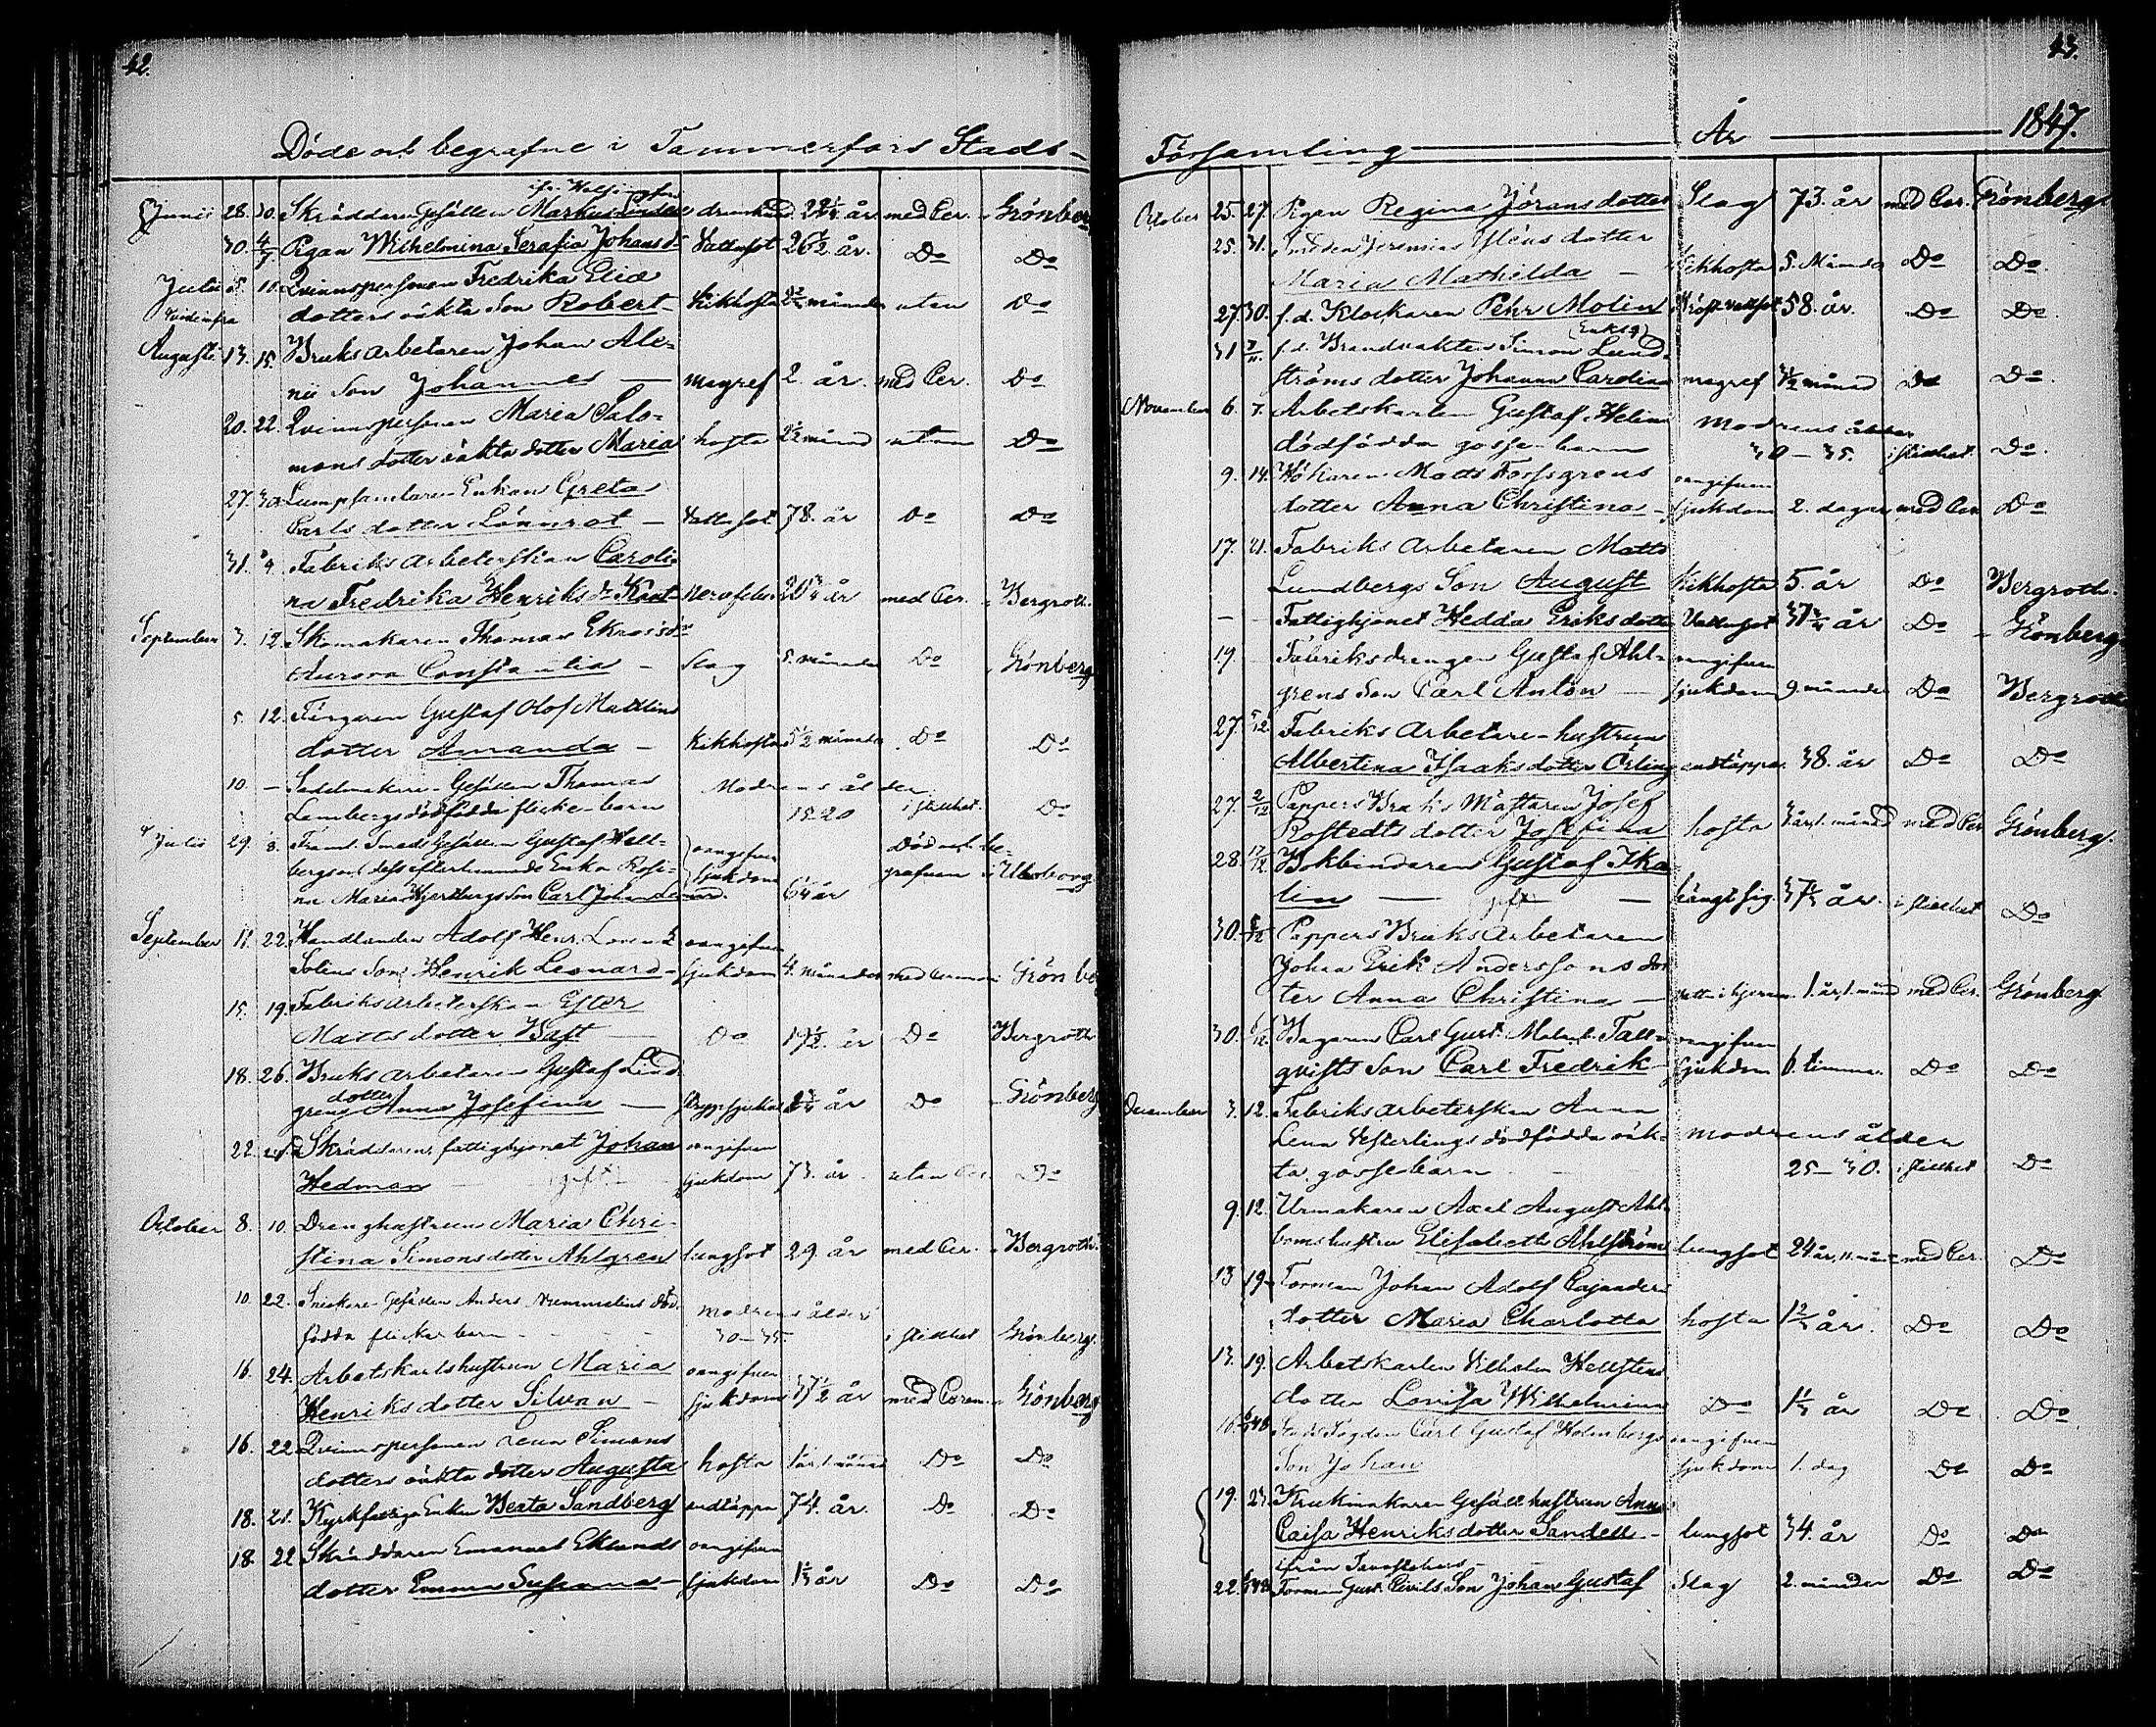 42.
Döde och begrafne i Tammerfors Stads-
Junii 28. 30. Skräddare Gesällen Markus Linden drunknad 22 1/4 år med Cer. Grönberg
30. 4/7 Pigan Wilhelmina Serafia Johansdr Vattusot 26 1/2 år. Do Do
Julii 5. 11. Qvinnspersonen Fredrika Eliæ
dotters oäkta Son Robert Kikhosta månader utan Do
Augusti 13. 15. Bruksarbetaren Johan Ale-
nii Son Johannes — magref 2. år. med Cer. Do
20. 22. Qvinnspersonen Maria Salo-
mons dotter oäkta dotter Maria hosta 2 1/2 månad utan Do
27. 30. Lumpsamlare Enkan Greta
Carls dotter Lönnrot — Vattusot 78. år Do Do
31. Fabriks Arbeterskan Caroli-
na Fredrika Henriks dr Kant nervfeber 20 3/4 år med Cer. Bergroth.
September 3. 12. Skomakaren Thomas Ekroos dr
Aurora Constantia — Slag 5. månader Do Grönberg
5. 12. Färgaren Gustaf Olof Mattlins
dotter Amanda — Kikhosta 5 1/2 månader Do Do
10. — Sadelmakare-Gesällen Thomas Modrens ålder
Lembergs dödfödda flicke-barn 15-20 i stillhet. Do
Julii 29. Framl. Smeds Gesällen Gustaf Hell- oangifven Död och be-
bergs och dess efterlemnade Enka Rosi- sjukdom grafven i Uleåborg
na Maria Hjertbergs Son Carl Johan 6 1/4 år
September 11. 22. Handlanden Adolf Henr. Lorentz oangifven
Solins Son Henrik Leonard — sjukdom 4. månader med Ceremoni Grönbe
15. 19. Fabriks arbeterskan Ester
Matts dotter Wast — Do 19 1/2. år Do Bergroth
18. 26. Bruks arbetaren Gustaf Lind
grens dotter Anna Josefina — år Do Grönberg
22. Skräddaren, fattighjonet Johan oangifven
Hedman — gift — sjukdom 73. år. utan Cer. Do
October 8. 10. Dränghustrun Maria Chri-
stina Simonsdotter Ahlgren lungsot 29. år med Cer. Bergroth.
10. 22. Snickare-Gesällen Anders död- modrens ålder
födda flicke barn 30-35 i stillhet Grönberg.
16. 24. Arbetskarlshustrun Maria oangifven
Henriks dotter Silvan — sjukdom 37 1/2 år med Cerem. Grönberg
16. 22 Qvinnspersonen Lena Simons
dotters oäkta dotter Augusta hosta 1 år, 1. månad Do Do
18. 21. Kyrkfattiga Enkan Beata Sandberg andtäppa 74. år. Do Do
18. 22 Skräddaren Emanuel Eklunds oangifven
dotter Emma Susanna — sjukdom år Do Do
43.
Församling — År — 1847.
October 25. 27. Pigan Regina Jörans dotter Slag 73. år med Cer. Grönberg
25. 31. Smeden Jeremias Yléns dotter
Maria Mathilda — Kikhosta 5. Månader Do Do.
27. 30. f.d. Klockaren Pehr Molin Bröstvattsot 58. år. Do Do.
31 7/11. f.d. Brandvakten Simon Lund-
ströms dotter Johanna Carolina magref månad Do Do.
November 6. 7. Arbetskarlen Gustaf Helins modrens ålder
dödfödda gosse barn 30-35. i stillhet Do.
9. 14. Hökaren Matts Forssgrens oangifven
dotter Anna Christina — sjukdom 2. dagar med Cer. Do
17. 21. Fabriks Arbetaren Matts
Lundbergs Son August Kikhosta 5. år Do Bergroth.
— — Fattighjonet Hedda Eriksdotter Vattusot 37 3/4 år Do Grönberg
19. — Fabriksdrengen Gustaf Ahl- oangifven
grens Son Carl Anton — sjukdom 9. månader Do Bergroth
27. 5/12 Fabriks Arbetare-hustrun
Albertina Isaaks dotter Örling andtäppa. 38. år Do Do
27. 2/12 Pappers Bruks Mästaren Josef
Rostedts dotter Josefina hosta år, 1. månad med Cer Grönberg.
28 Bokbindaren Gustaf Ika-
lin — gift — hängt sig. år. i stillhet Do
30. 5/12 Pappers Bruks Arbetaren
Johan Erik Anderssons dot
ter Anna Christina — vatten i hjernan. 1. år, 1. månad med Cer. Grönberg
30. Bagaren Carl Gust. Tall- oangifven
qvists Son Carl Fredrik — sjukdom 6. timmar. Do Do
December 3. 12. Fabriksarbeterskan Anna
Lena Vesterlings dödfödda oäk- modrens ålder
ta gossebarn 25-30. i stillhet Do
9. 12. Urmakaren Axel August Ahl-
boms hustru Elisabeth Ahlström lungsot 24 år, 11. mån. med Cer. Do
13 19. Forman Johan Adolf Cajanders
dotter Maria Charlotta hosta år. Do Do
13. 19. Arbetskarlen Vilhelm Hellstens
dotter Lovisa Wilhelmina Do år Do Do
16. Stads Fogden Carl Gustaf Holmbergs oangifven
Son Johan sjukdom 1. dag Do Do
19. 23. Krukmakare Gesäll hustrun Anna
Caisa Henriks dotter Sandell — lungsot 34. år Do Do
ifrån Tavastehus —
22. Forman Gust. Son Johan Gustaf Slag 2. månader Do Do